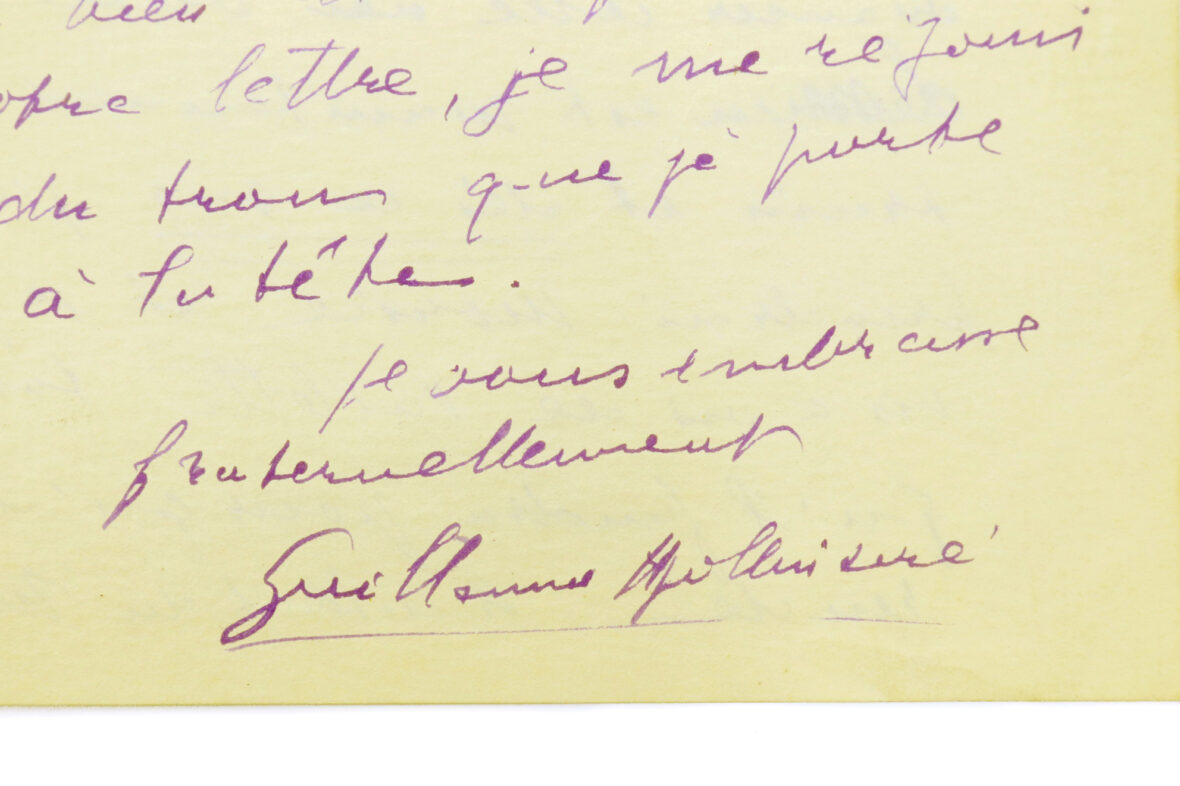 bien
otre lettre, je me réjoui
du trou que je porte
à la tête.
je vous embrasse
fraternellement
Guillaume Apollinaire